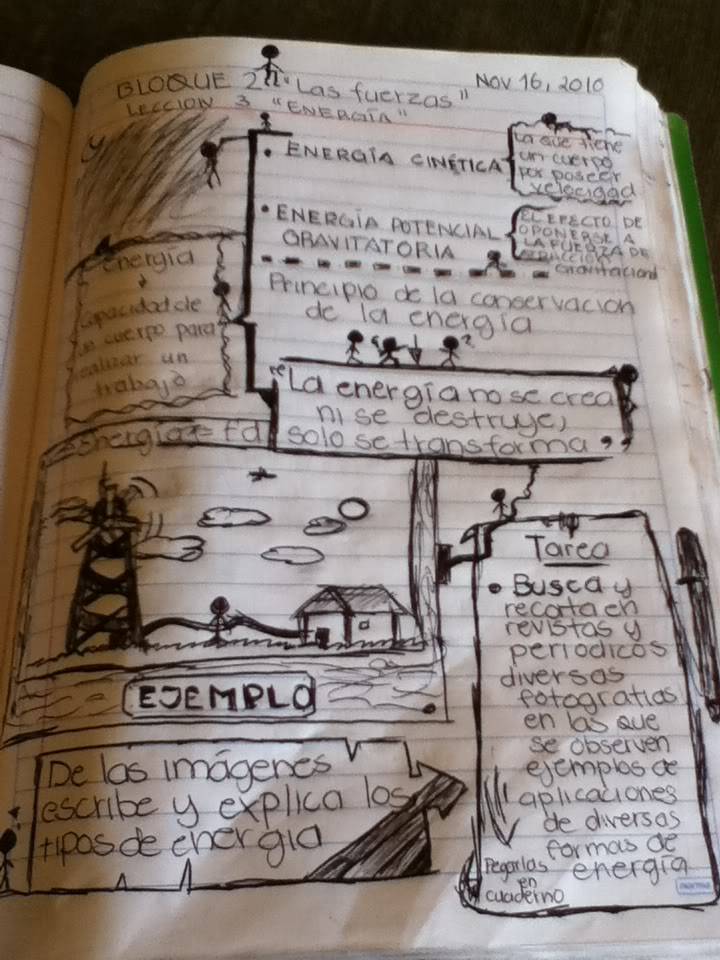 BLOQUE 2 "Las fuerzas"
Nov 16, 2010
LECCION 3 "ENERGÍA"
• ENERGÍA CINÉTICA
La que tiene
un cuerpo
por poseer
velocidad
• ENERGÍA POTENCIAL
GRAVITATORIA
EL EFECTO DE
OPONERSE A
LA FUERZA DE
ATRACCIÓN
GRAVITACIONAL
Energía
capacidad de
un cuerpo para
realizar un
trabajo
Energía = Fd
Principio de la conservacion
de la energía
"La energía no se crea
ni se destruye,
solo se transforma"
EJEMPLO
De las imágenes
escribe y explica los
tipos de energia
Tarea
• Busca y
recorta en
revistas y
periodicos
diversas
fotografias
en las que
se observen
ejemplos de
aplicaciones
de diversas
formas de
energía
Pegarlas
en
cuaderno
norma